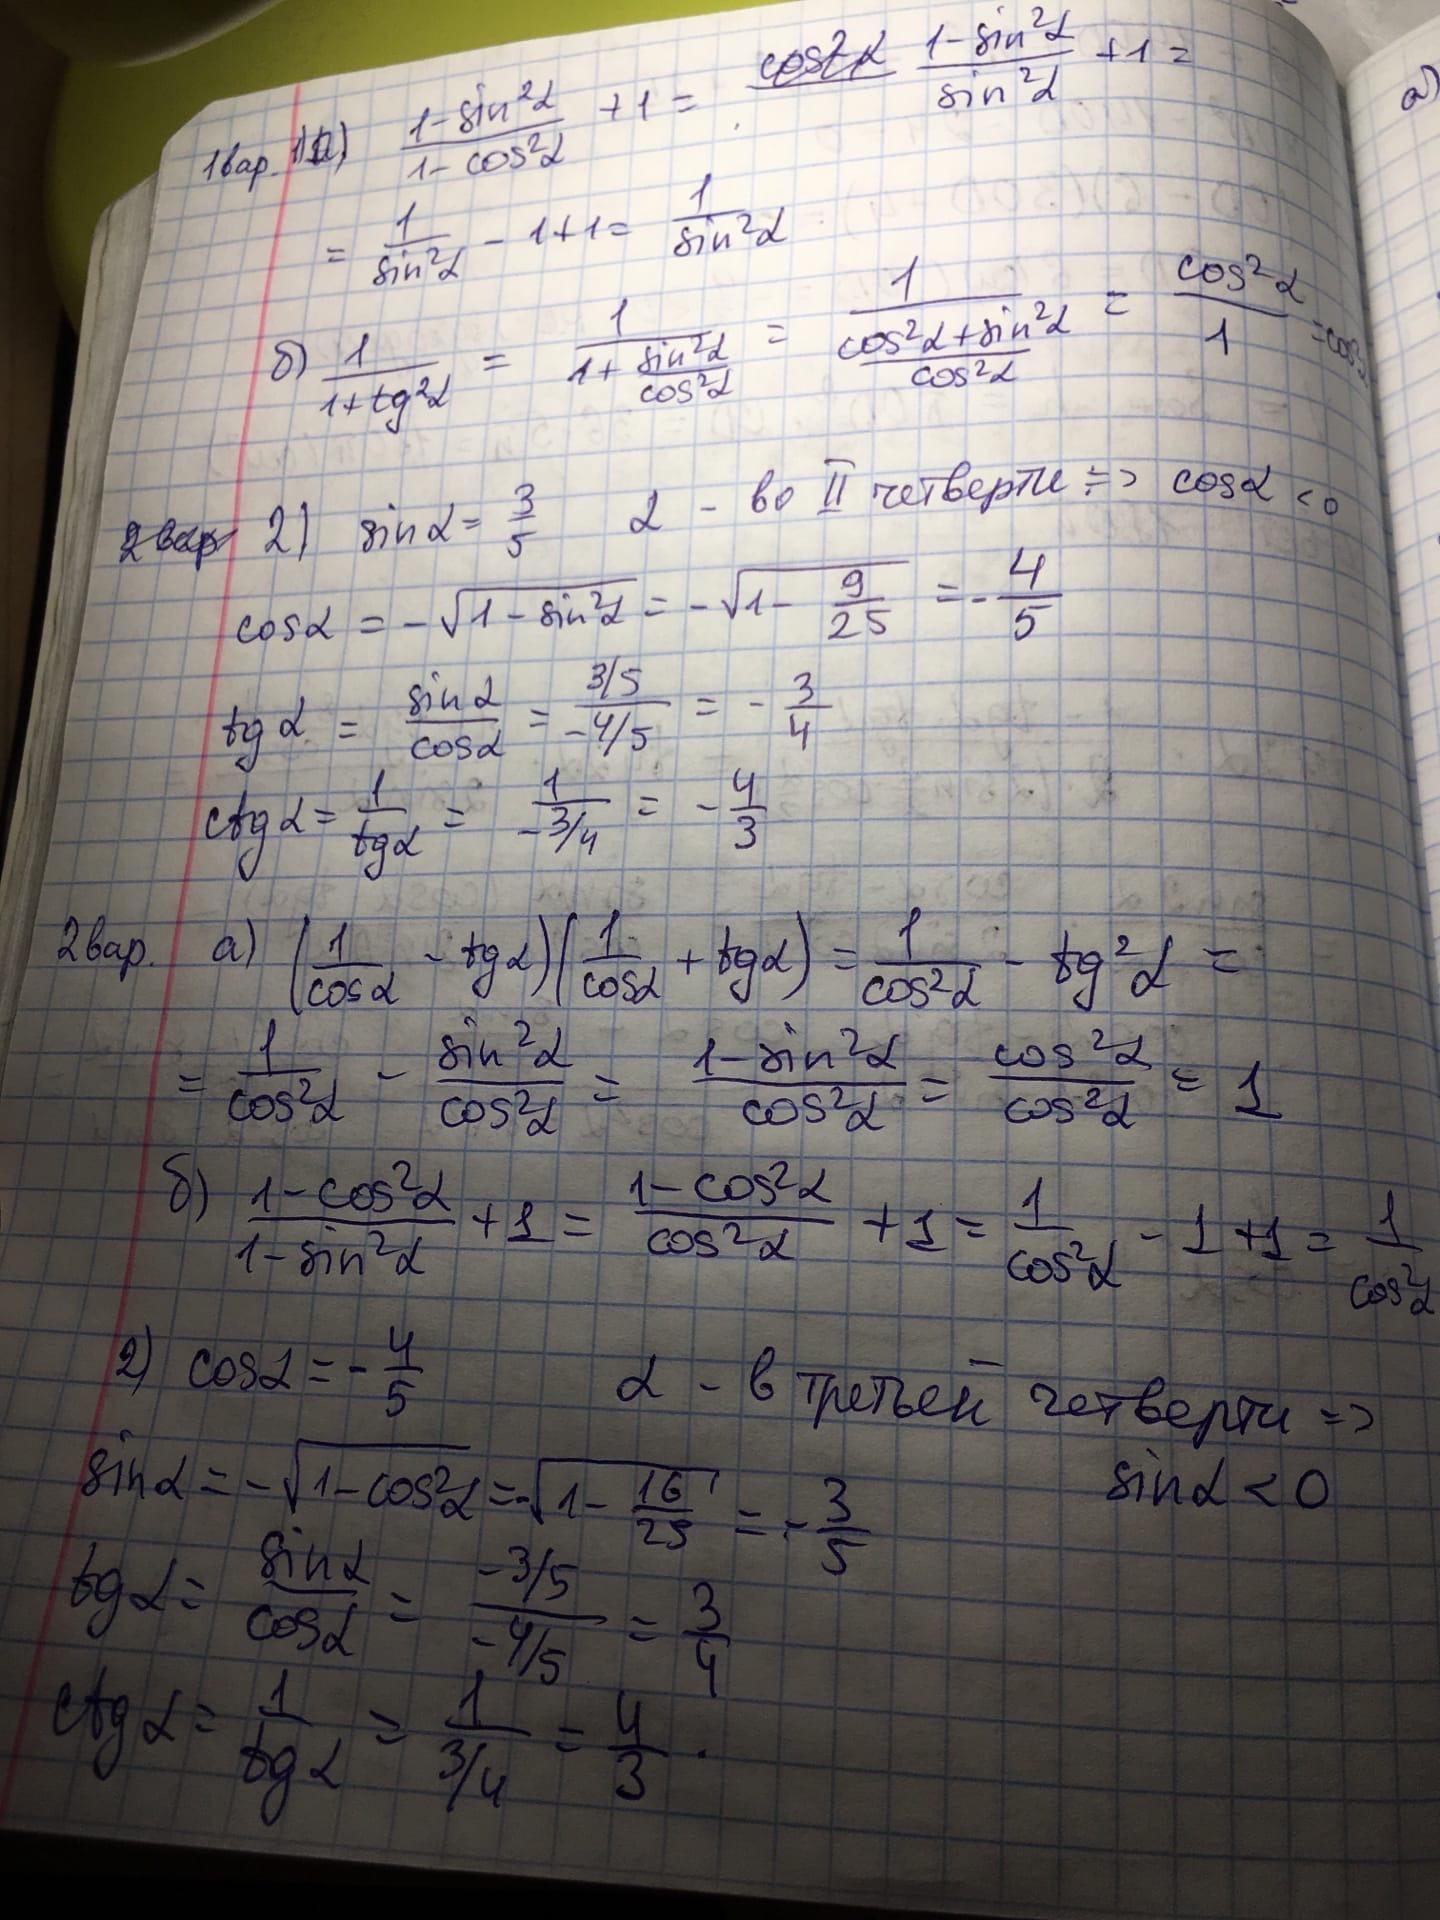 1вар. 1) а) (1-sin²α)/(1-cos²α) + 1 = (1-sin²α)/(sin²α) + 1 =
= 1/sin²α - 1+1 = 1/sin²α
б) 1/(1+tg²α) = 1/(1+ sin²α/cos²α) = 1/((cos²α+sin²α)/cos²α) = cos²α/1 = cos²α
2) sinα = 3/5 α - во II четверти => cosα < 0
cosα = -√(1-sin²α) = -√(1- 9/25) = - 4/5
tgα = sinα/cosα = (3/5)/(-4/5) = - 3/4
ctgα = 1/tgα = 1/(-3/4) = - 4/3
2вар. а) (1/cosα - tgα)(1/cosα + tgα) = 1/cos²α - tg²α =
= 1/cos²α - sin²α/cos²α = (1-sin²α)/cos²α = cos²α/cos²α = 1
б) (1-cos²α)/(1-sin²α) + 1 = (1-cos²α)/cos²α + 1 = 1/cos²α - 1 + 1 = 1/cos²α
2) cosα = - 4/5 α - в третьей четверти =>
sinα < 0
sinα = -√(1-cos²α) = -√(1- 16/25) = - 3/5
tgα = sinα/cosα = (-3/5)/(-4/5) = 3/4
ctgα = 1/tgα = 1/(3/4) = 4/3.